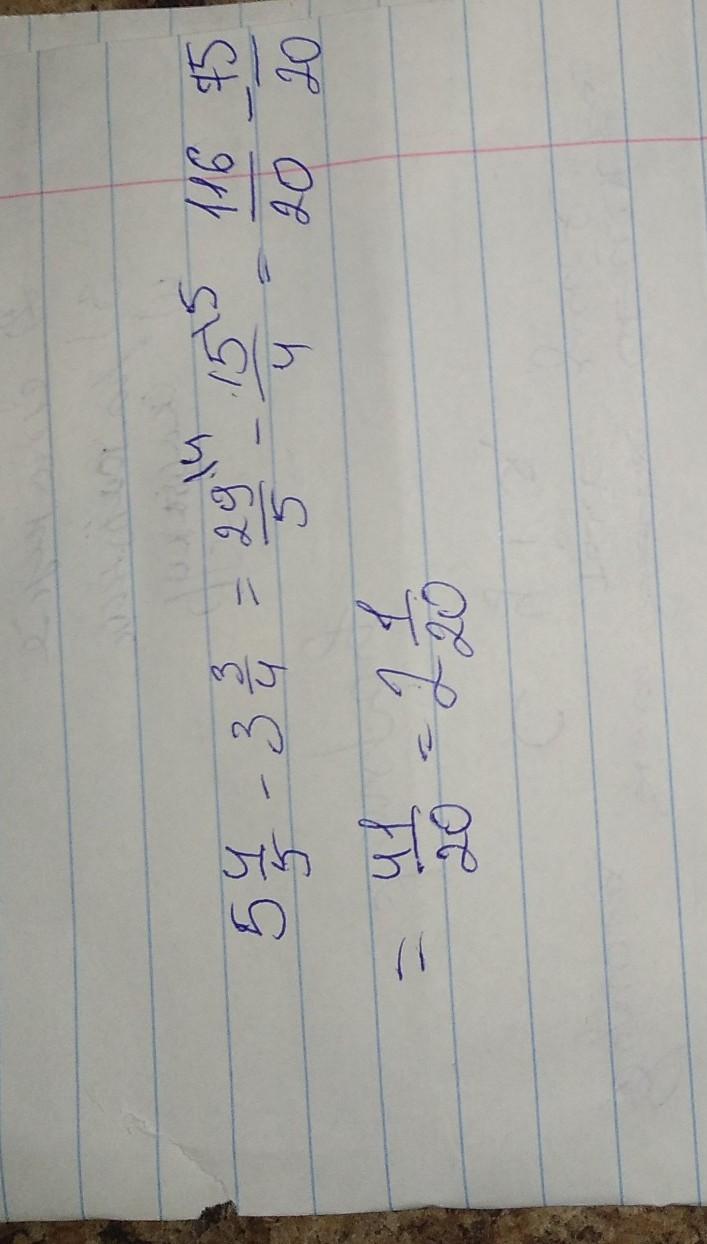 5 4/5 - 3 3/4 = 29\4/5 - 15\5/4 = 116/20 - 75/20
= 41/20 = 2 1/20